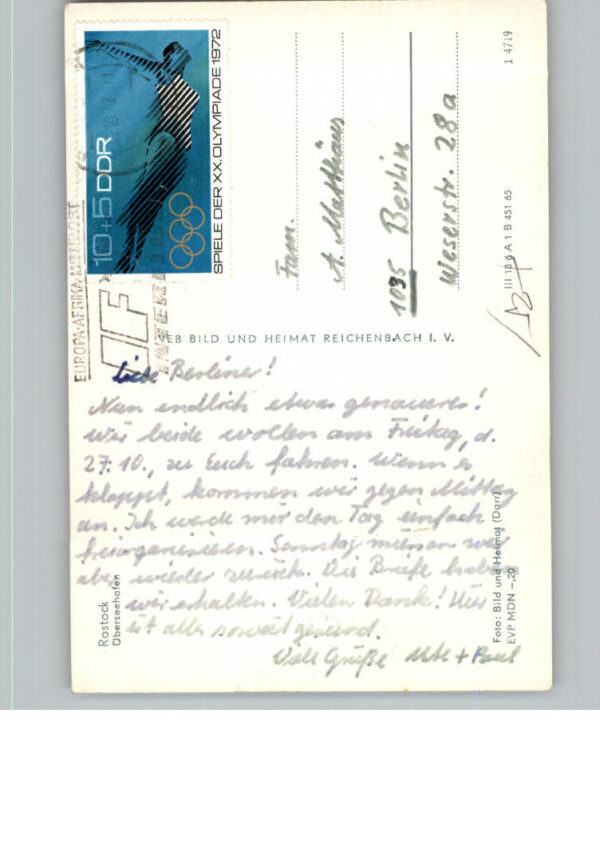 10+5 DDR
SPIELE DER XX. OLYMPIADE 1972
EUROPA-AFRIKA-MITTELOST
Fam.
A. Matthäus
1035 Berlin
Weserstr. 28a
1 4719
III 18 6 A 1 B 451 65
VEB BILD UND HEIMAT REICHENBACH I. V.
Liebe Berliner!
Nun endlich etwas genaueres!
Wir beide wollen am Freitag, d.
27.10., zu Euch fahren. Wenn es
klappt, kommen wir gegen Mittag
an. Ich werde mir den Tag einfach
freiorganisieren. Sonntag müssen wir
aber wieder zurück. Die Briefe haben
wir erhalten. Vielen Dank! Hier
ist alles soweit gesund.
Viele Grüße Ute + Paul
Rostock
Überseehafen
Foto: Bild und Heimat (Darr)
EVP MDN -,20